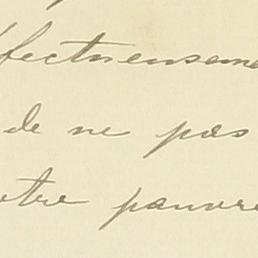 ffectueuseme
de ne pas
otre pauvre